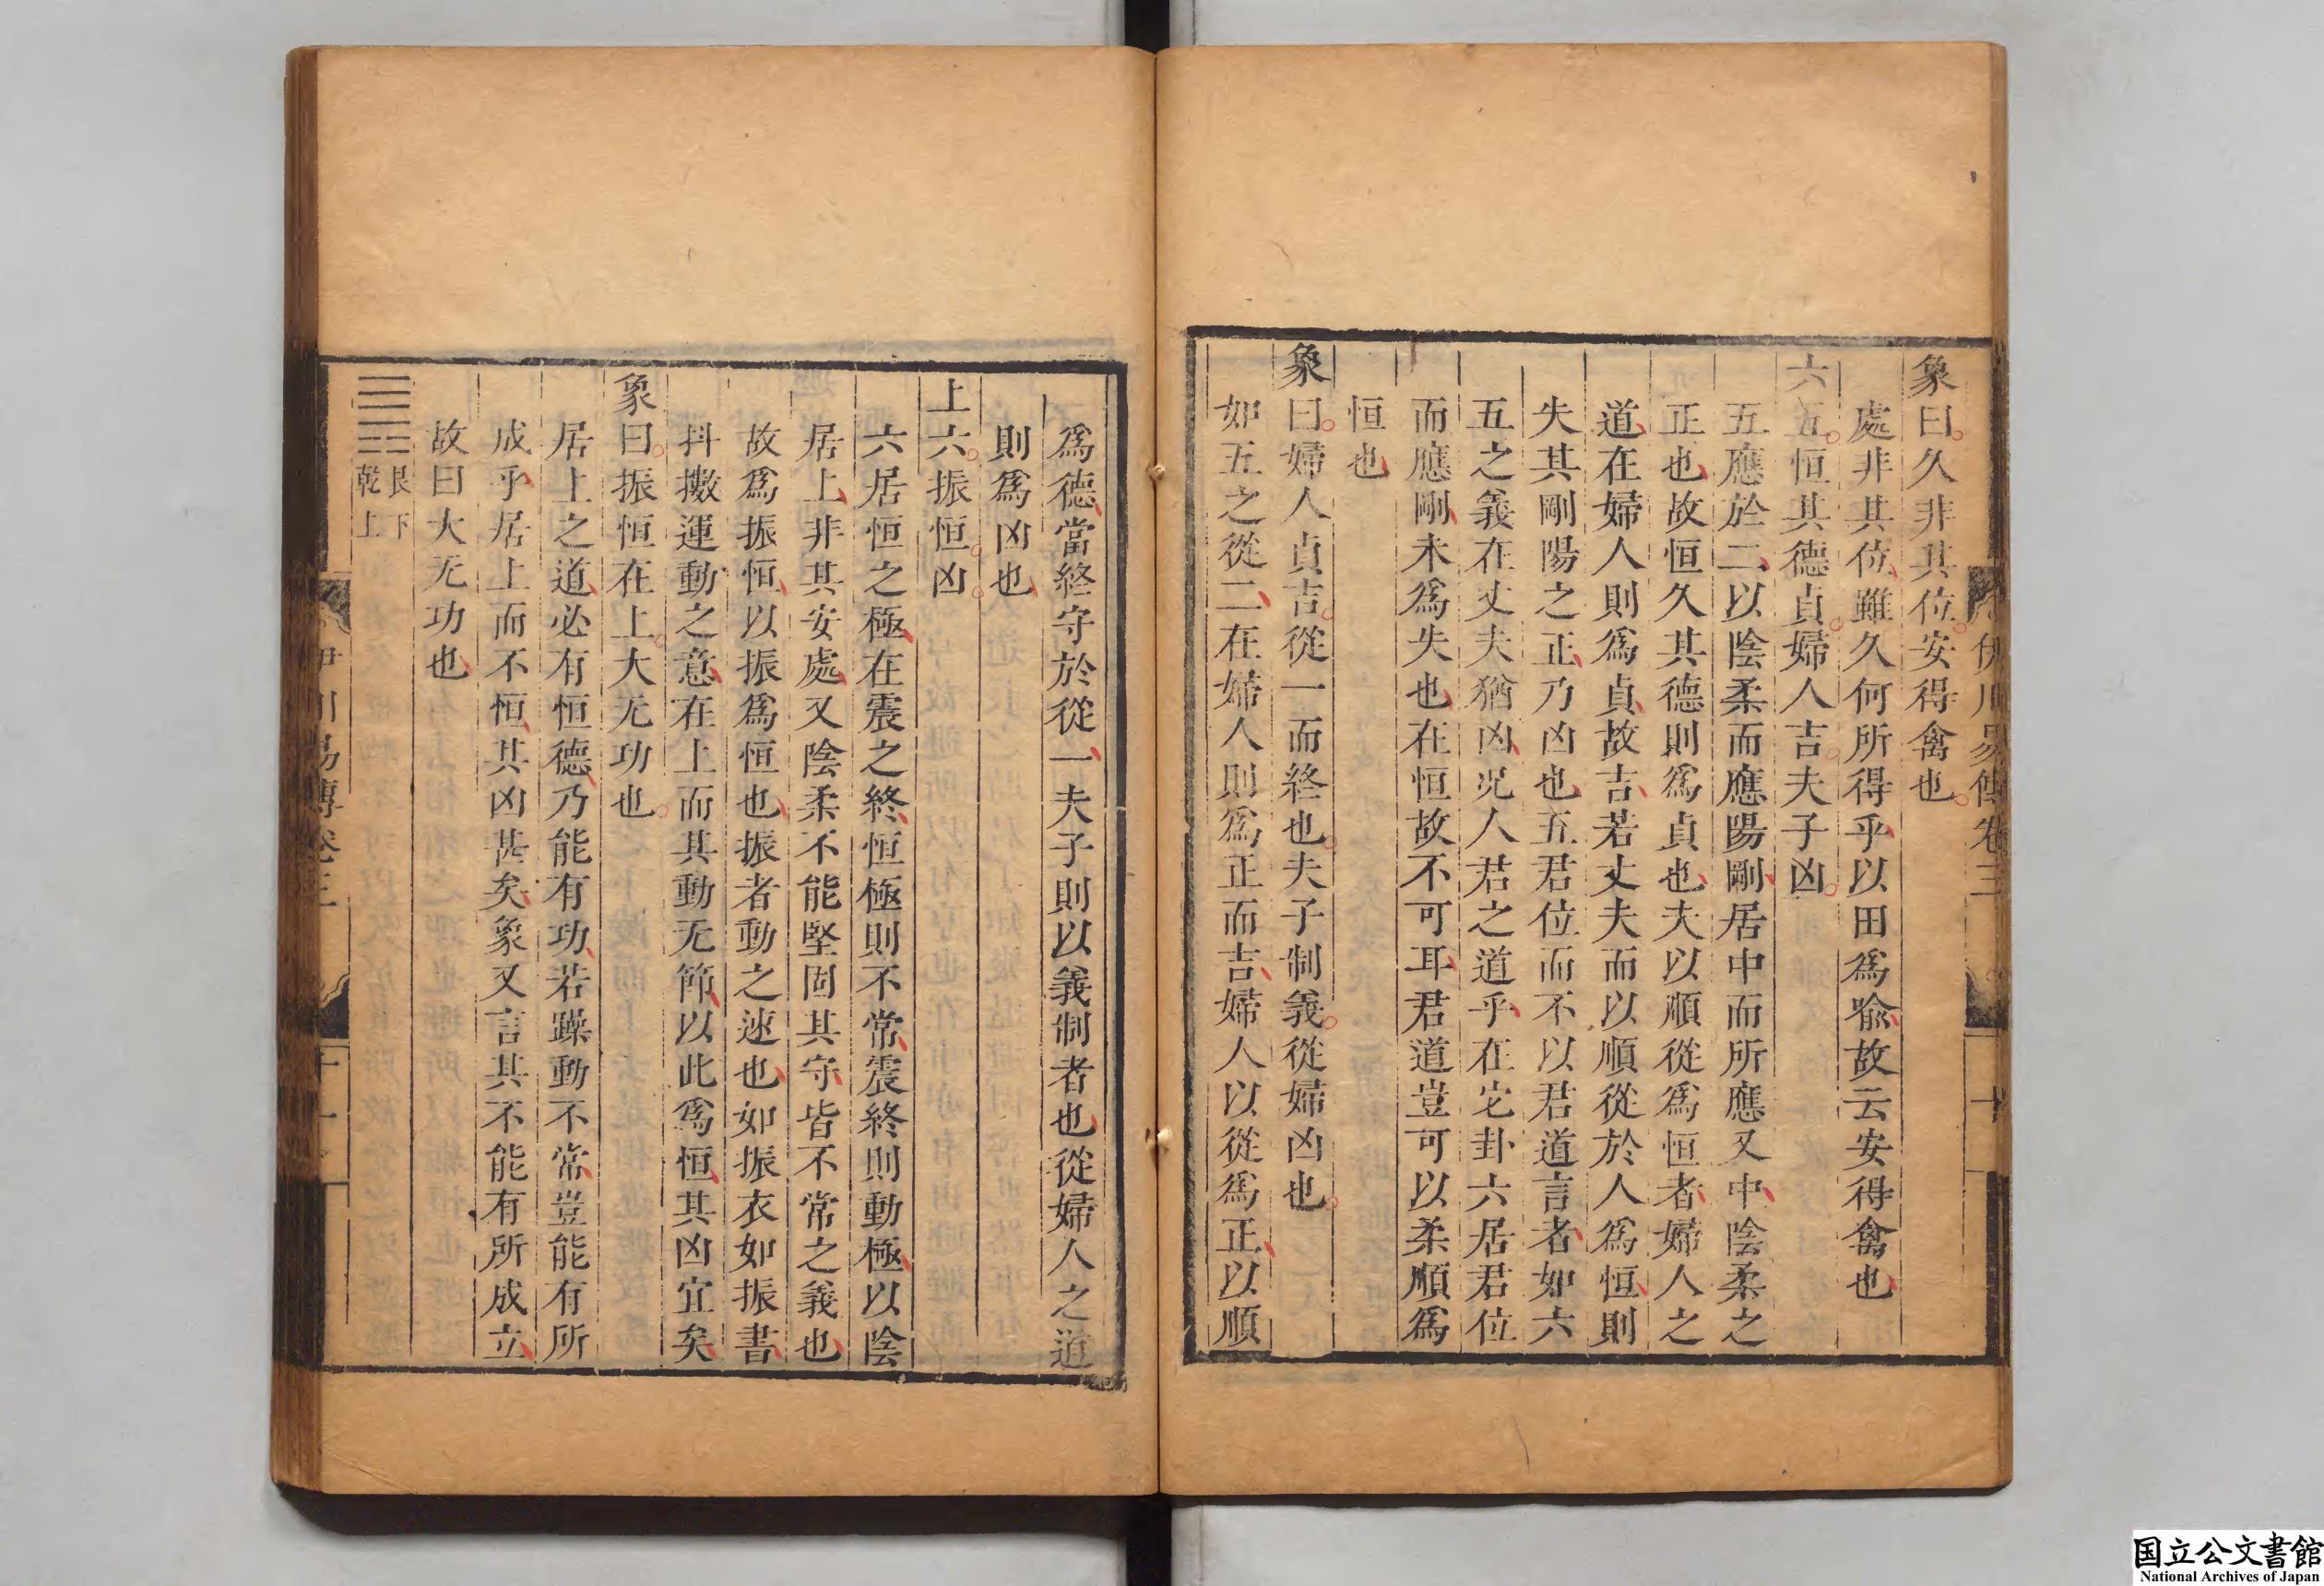 象曰久非其位安得禽也
處非其位雖久何所得乎以田爲喻故云安得禽也
六五恒其德貞婦人吉夫子凶
五應於二以陰柔而應陽剛居中而所應又中陰柔之
正也故恒久其德則爲貞也夫以順從爲恒者婦人之
道在婦人則爲貞故吉若丈夫而以順從於人爲恒則
失其剛陽之正乃凶也五君位而不以君道言者如六
五之義在丈夫猶凶况人君之道乎在它卦六居君位
而應剛未爲失也在恒故不可耳君道豈可以柔順爲
恒也
象曰婦人貞吉從一而終也夫子制義從婦凶也
如五之從二在婦人則爲正而吉婦人以從爲正以順
伊川易傳卷三
十
爲德當終守於從一夫子則以義制者也從婦人之道
則爲凶也
上六振恒凶
六居恒之極在震之終恒極則不常震終則動極以陰
居上非其安處又陰柔不能堅固其守皆不常之義也
故爲振恒以振爲恒也振者動之速也如振衣如振書
抖擻運動之意在上而其動无節以此爲恒其凶宜矣
象曰振恒在上大无功也
居上之道必有恒德乃能有功若躁動不常豈能有所
成乎居上而不恒其凶甚矣象又言其不能有所成立
故曰大无功也
艮下
乾上
伊川易傳卷三
十一
国立公文書館
National Archives of Japan